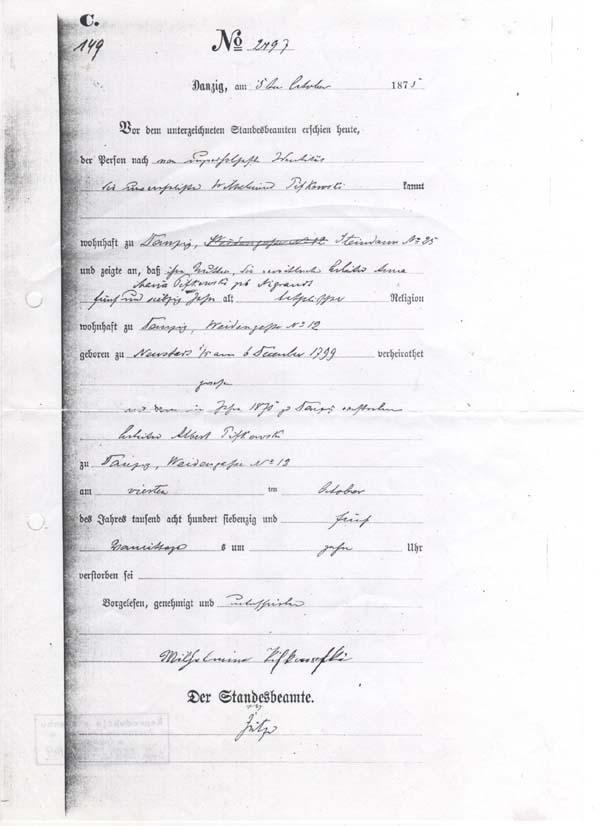 C.
149
No 2497
Danzig, am 5ten October 1875
Vor dem unterzeichneten Standesbeamten erschien heute,
der Person nach
die unverehelichte Wilhelmine Pifkowski kannt
wohnhaft zu Danzig, Weidengasse No 12 Steindamm No 25
und zeigte an, daß ihre Mutter, die verwittwete Arbeiter Anna
Maria Pifkowski geb
fünf und siebzig Jahr alt, katholischer Religion
wohnhaft zu Danzig, Weidengasse No 12
geboren zu Neustadt am 6 December 1799 verheirathet
gewesen
mit dem im Jahr 1870 zu Danzig verstorbenen
Arbeiter Albert Pifkowski
zu Danzig, Weidengasse No 12
am vierten ten October
des Jahres tausend acht hundert siebenzig und fünf
Vormittags s um zehn Uhr
verstorben sei
Vorgelesen, genehmigt und unterschrieben
Wilhelmine Pifkowski
Der Standesbeamte.